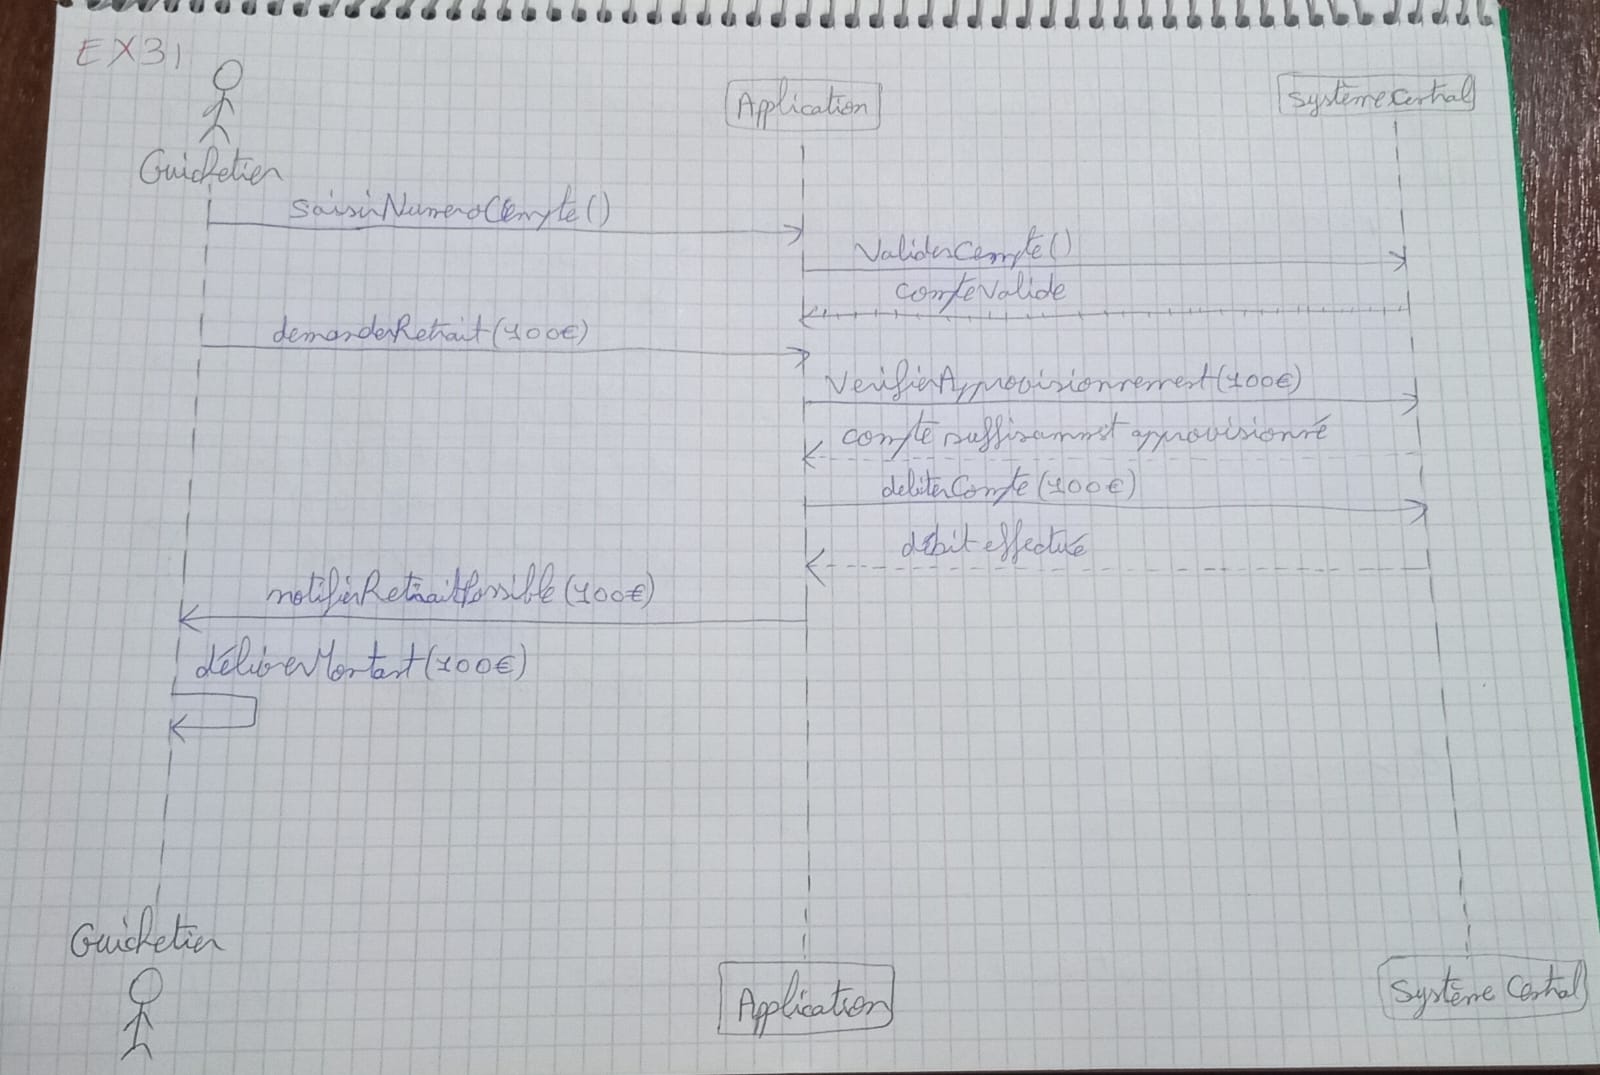 EX31
Application
Système Central
Guichetier
saisirNumeroCompte()
ValiderCompte()
compteValide
demanderRetrait(100€)
VerifierApprovisionnement(100€)
compte suffisamment approvisionné
debiterCompte(100€)
débit effectué
notifierRetraitPossible(100€)
délivrerMontant(100€)
Guichetier
Application
Système Central